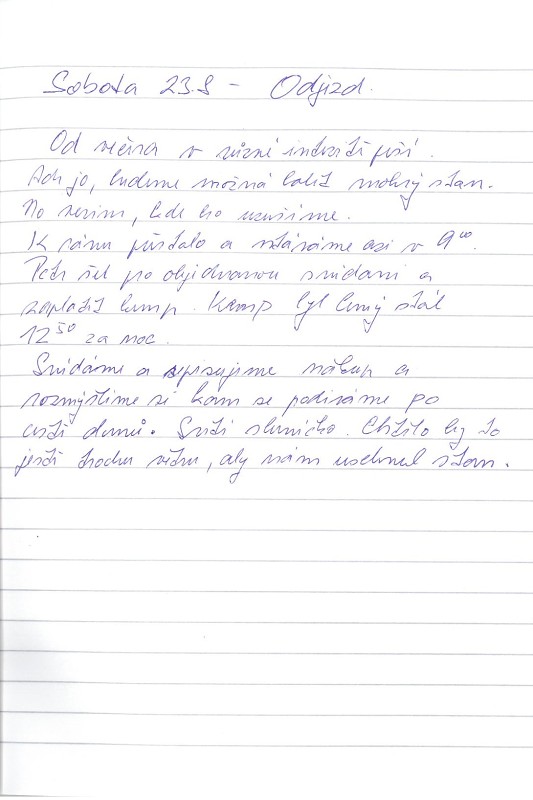 Sobota 23.8 - Odjezd.
Od večera v různé intenzitě prší.
Ach jo, budeme možná balit mokrý stan.
No nevim, kde ho usušíme.
K ránu přestalo a vstáváme asi v 9⁰⁰.
Petr šel pro objednanou snídani a
zaplatit kemp. Kemp byl levný stál
12⁵⁰ za noc.
Snídáme a sepisujeme nákup a
rozmýšlíme si kam se podíváme po
cestě domů. Svítí sluníčko. Chtělo by to
ještě trochu větru, aby nám uschnul stan.